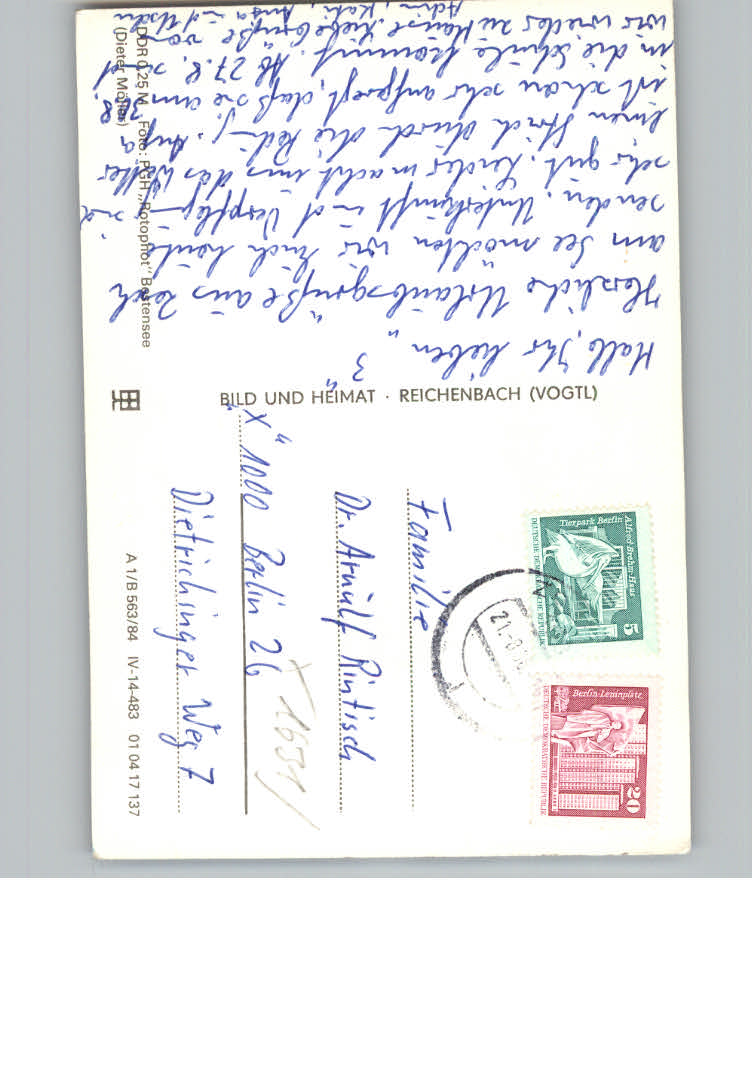 Hallo, Ihr lieben „3"
Herzliche Urlaubsgrüße aus Zech
am See möchten wir Euch heute
senden. Unterkunft und Verpfleg- sind
sehr gut. Leider macht uns das Wetter
einen Strich durch die Rech-g. Anja
ist schon sehr aufgeregt, daß sie am 3.8.
in die Schule kommt. Ab 27.8. sind
wir wieder zu Hause. Liebe Grüße von
Achim, Kati, Anja und
DDR 0,25 M Foto: PGH „Rotophot" Bestensee
(Dieter Möller)
BILD UND HEIMAT · REICHENBACH (VOGTL)
Familie
Dr. Arnulf Rintisch
„X" 1000 Berlin 26
X 1631/
Dietrichinger Weg 7
A 1/B 563/84 IV-14-483 01 04 17 137
Alfred-Brehm-Haus
Tierpark Berlin
5
DEUTSCHE DEMOKRATISCHE REPUBLIK
21.-8.
Berlin-Leninplatz
20
DEUTSCHE DEMOKRATISCHE REPUBLIK